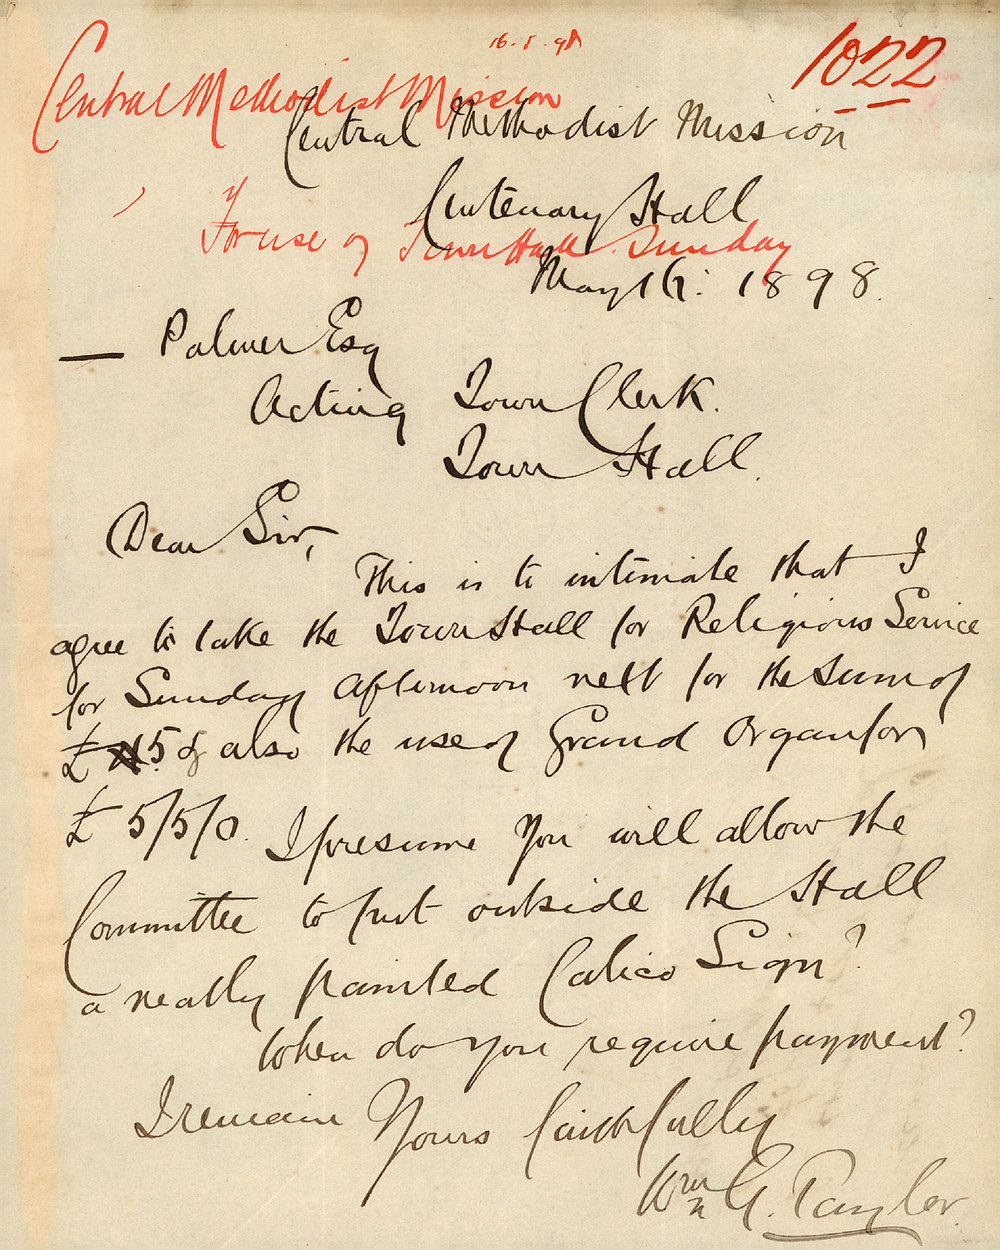 16.5.98
1022
Central Methodist Mission
Central Methodist Mission
Centenary Hall
For use of Town Hall Sunday
May 16: 1898.
— Palmer Esq
Acting Town Clerk.
Town Hall.
Dear Sir,
This is to intimate that I
agree to take the Town Hall for Religious Service
for Sunday Afternoon next for the sum of
£ 15 & also the use of Grand Organ for
£ 5/5/0. I presume you will allow the
Committee to put outside the Hall
a neatly painted Calico Sign?
When do you require payment?
I remain Yours faithfully
Wm G. Taylor.